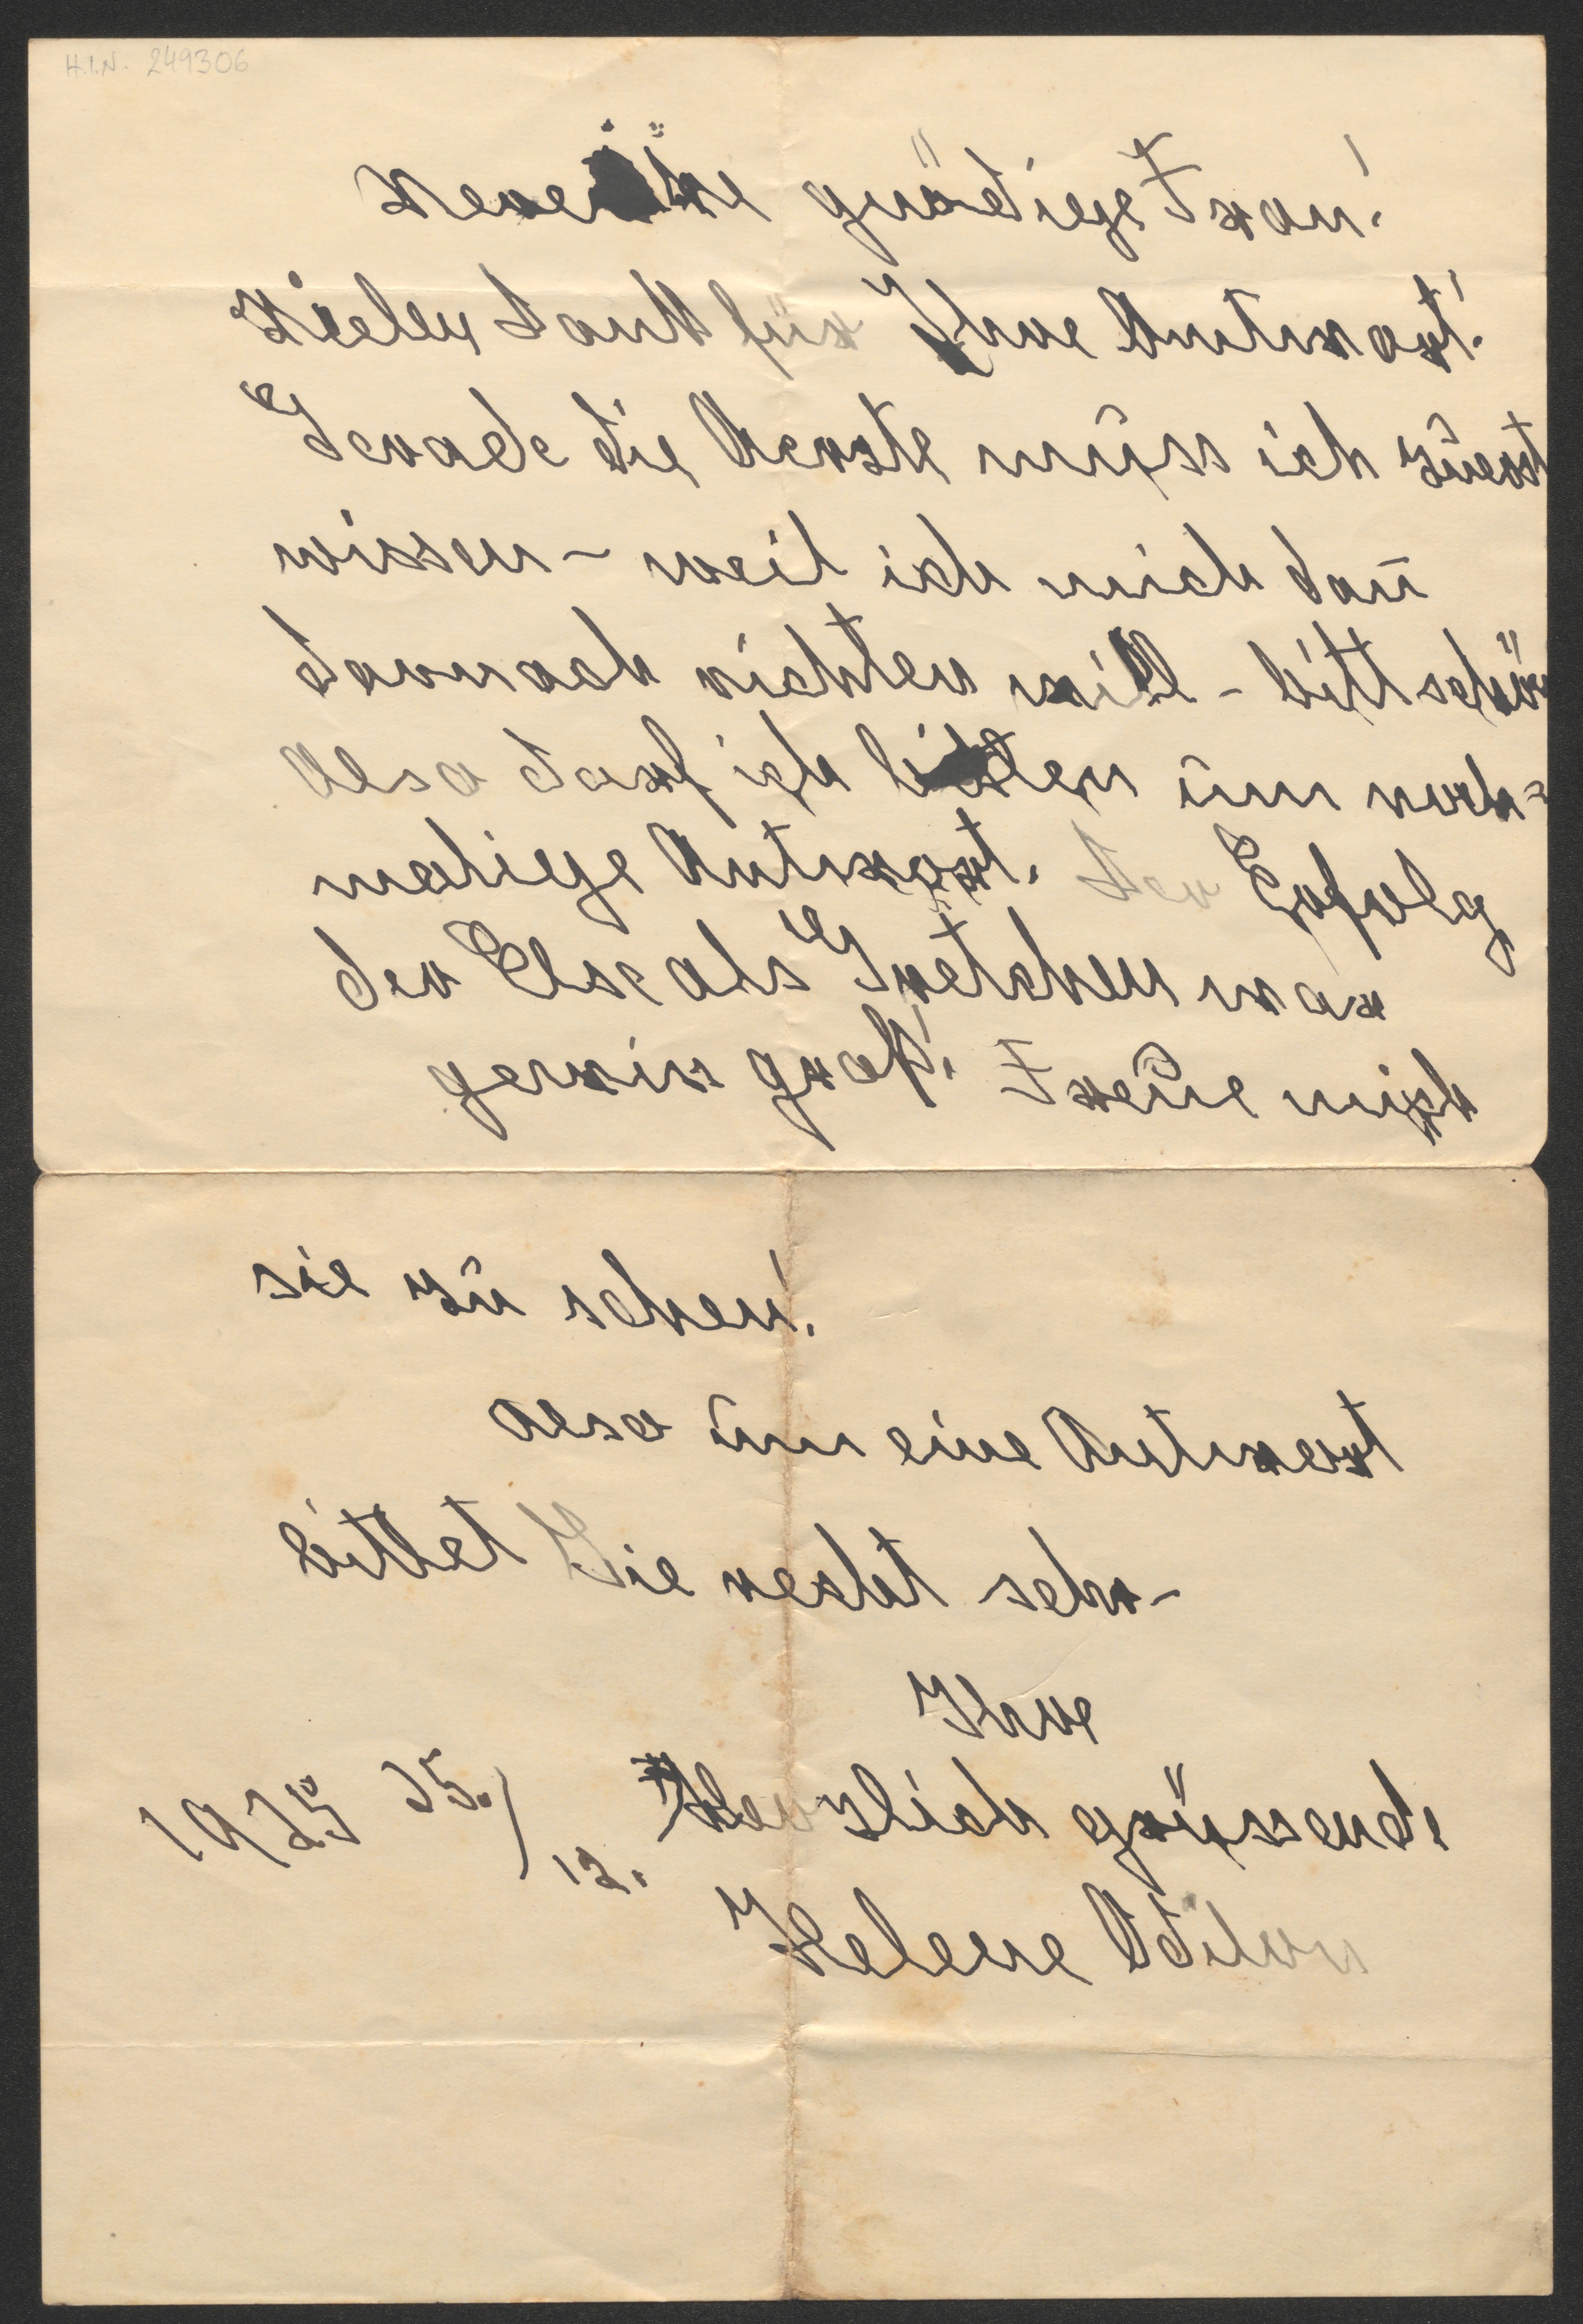 H.I.N. 249306
gnädige Frau!
Vielen Dank für Ihre Antwort!
Gerade die Aerzte muss ich zuerst
wissen – weil ich mich dan̄
darnach richten will – bitt schön
also darf ich bitten um noch=
malige Antwort. Der Erfolg
der Else als Gretchen war
gewiss groß! Freue mich
sie zu sehen!
also um eine Antwort
bittet Sie recht sehr –
Ihre
herzlich grüssende
1925 25./12.
Helene Odilon